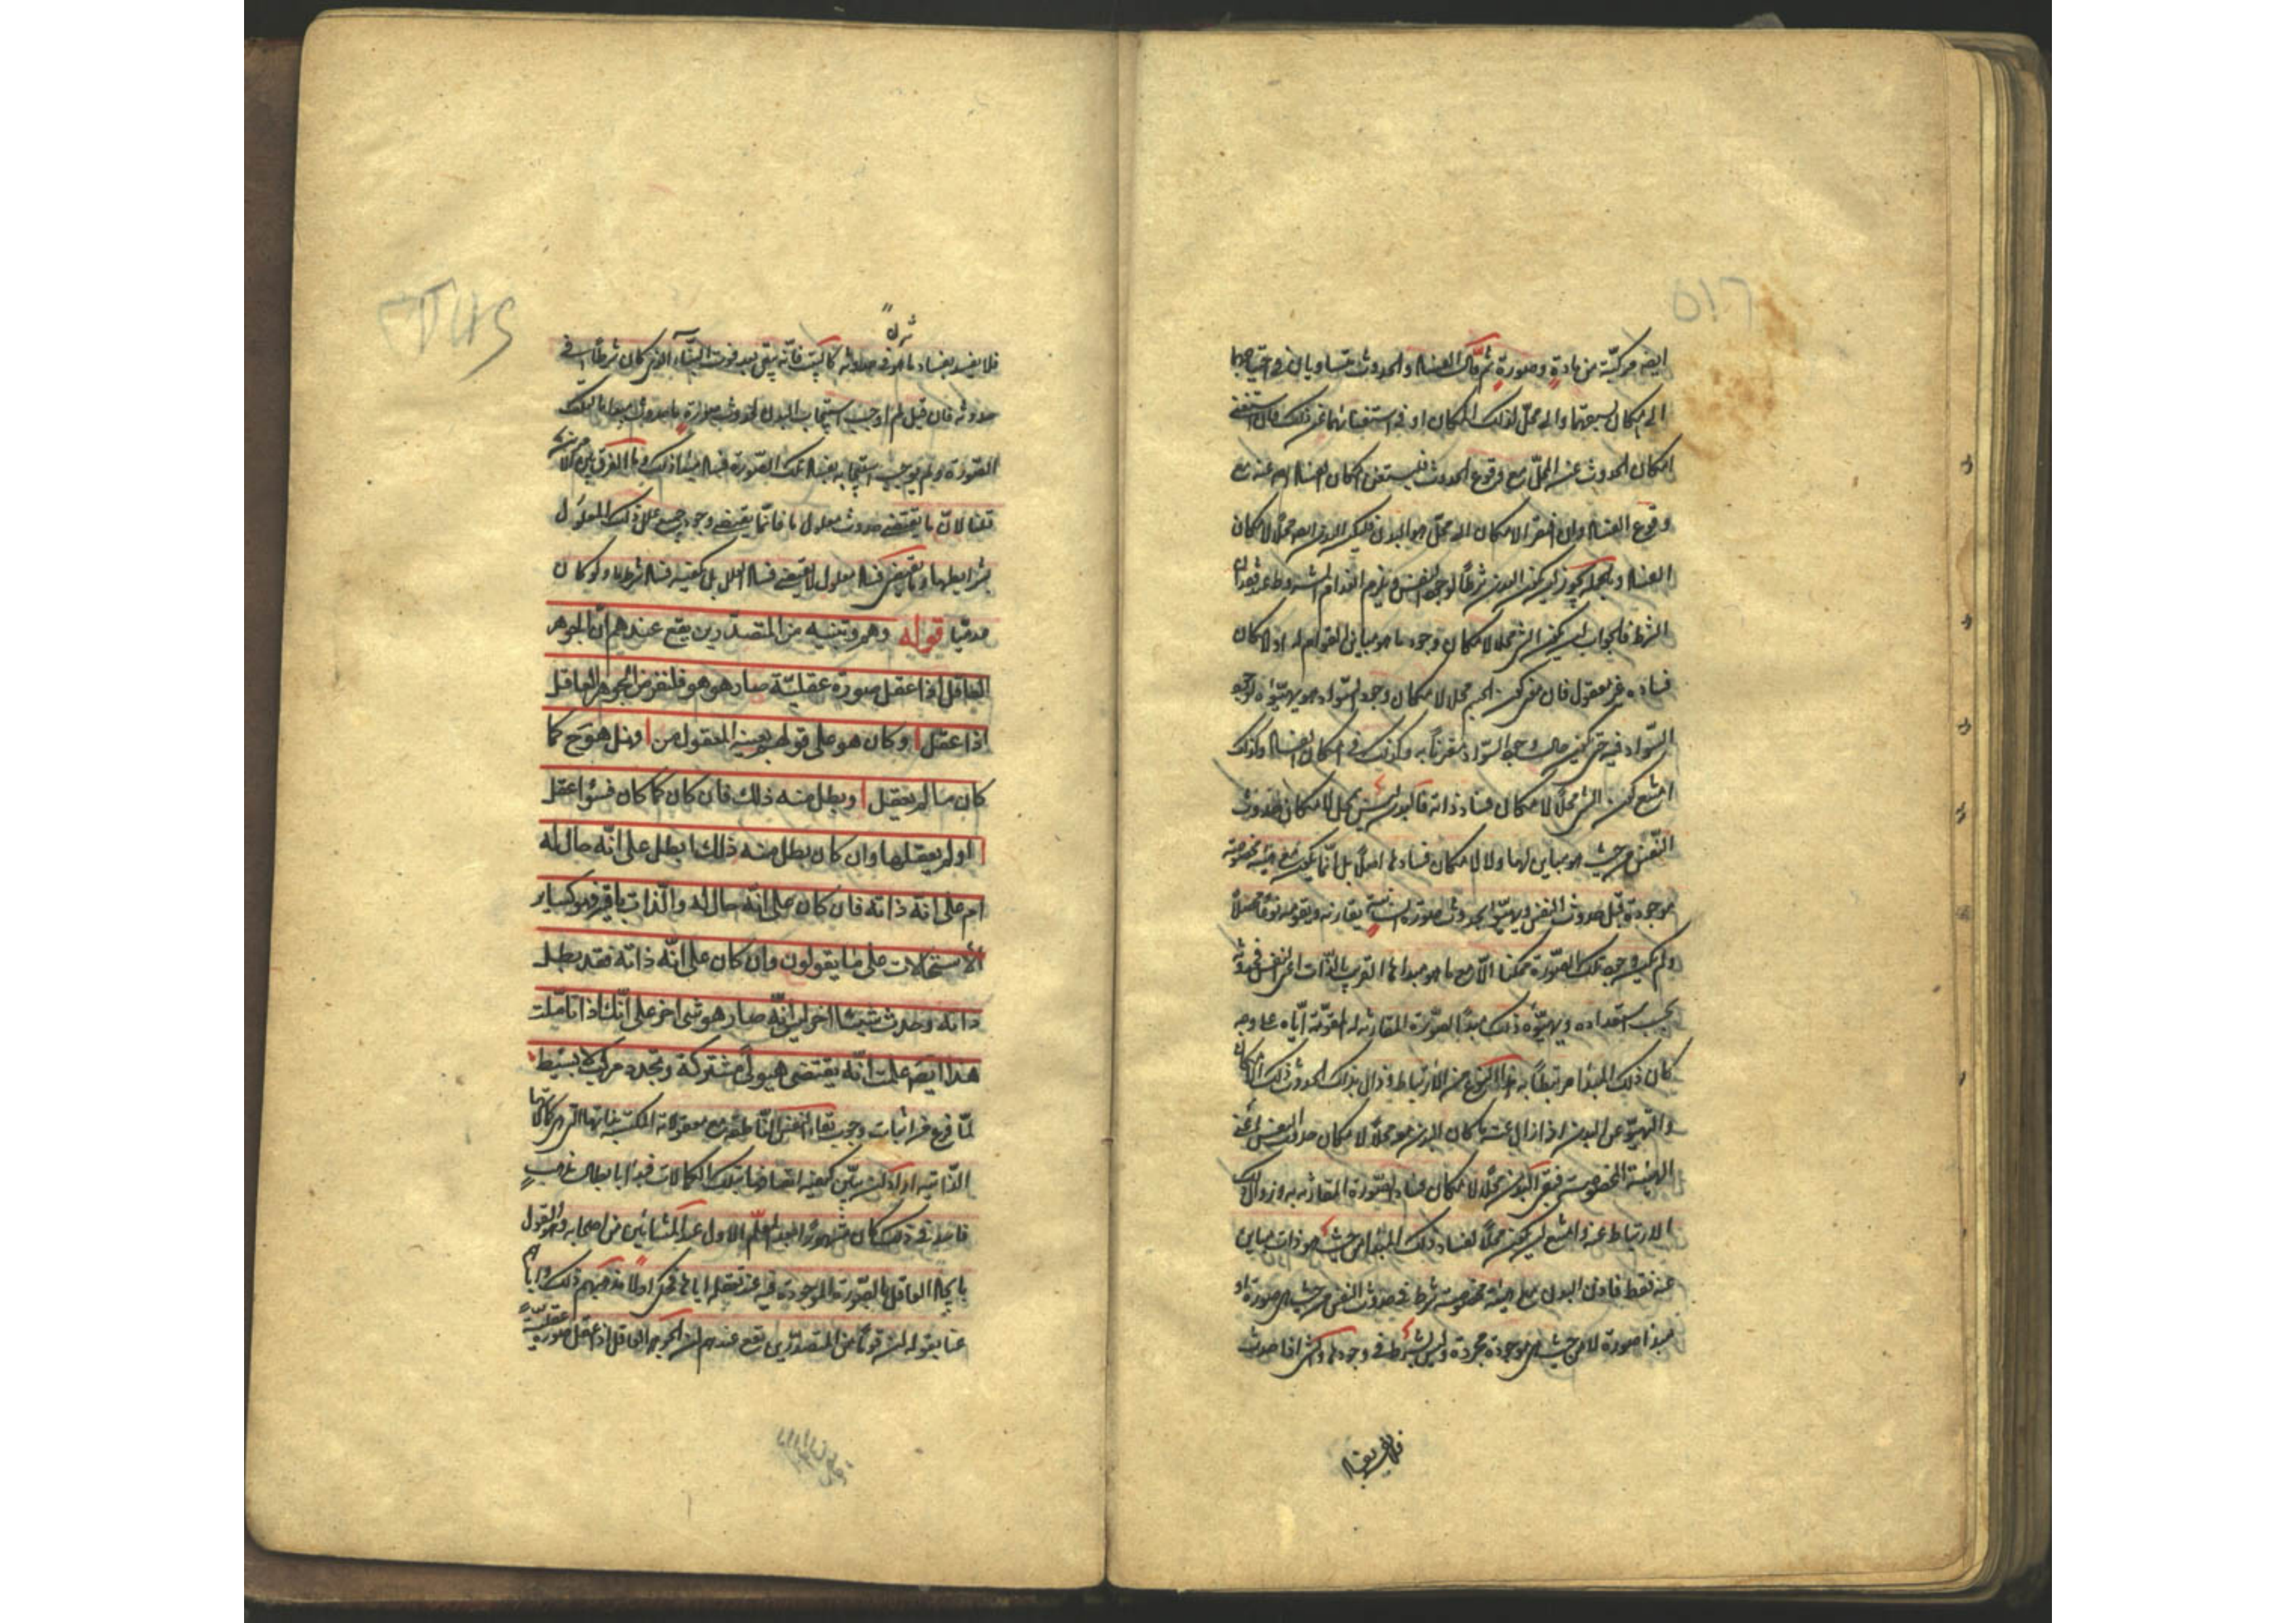 ايضا مركبة من مادة وصورة ثم قال الفساد والحدوث متساويان في احتياجهما
الى امكان يسبقهما والى محل لذلك الامكان او في استغنائهما عن ذلك فان استغنى
امكان الحدوث عن المحل مع وقوع الحدوث فليستغن امكان الفساد ايضا عنه مع
وقوع الفساد وان افتقر الامكان الى محل هو البدن فليكن البدن ايضا محلا لامكان
الفساد وبالجملة يجوز ان يكون البدن شرطا لوجود النفس ويلزم انعدام المشروط عند فقدان
الشرط فالجواب ان كون الشيء محلا لامكان وجود ما هو مباين القوام له او لامكان
فساده غير معقول فان معنى كون الجسم محلا لامكان وجود السواد هو تهيؤه لوجود
السواد فيه حتى يكون حال وجود السواد مقترنا به وكذلك في امكان الفساد ولذلك
امتنع كون الشيء محلا لامكان فساد ذاته فالبدن ليس بمحل لامكان حدوث
النفس من حيث هو مباين لها ولا لامكان فسادها اصلا بل انما يكون مع هيئة مخصوصة
موجودة قبل حدوث النفس وتهيؤ لحدوث صورة انسانية يقارنه ويقومه نوعا محصلا
ولم يكن وجود تلك الصورة ممكنا الا مع ما هو مبدأها القريب بالذات اعني النفس فحدث
بحسب استعداده وتهيؤه ذلك مبدأ الصورة المقارنة له المقومة اياه على وجه
كان ذلك المبدأ مرتبطا به هذا النوع من الارتباط وزال بذلك الحدوث ذلك الامكان
والتهيؤ عن البدن اذ زال عنه ما كان البدن معه محلا لامكان حدوث النفس اعني
الهيئة المخصوصة فبقي البدن محلا لامكان فساد الصورة المقارنة به وزوال
الارتباط عنه وامتنع ان يكون محلا لفساد ذلك المبدأ من حيث هو ذات مباين
عنه فقط فاذن البدن مع هيئة مخصوصة شرط في حدوث النفس من حيث هي صورة او
مبدأ صورة لا من حيث هي موجودة مجردة وليس بشرط في وجودها والشيء اذا حدث
فلا يفسد بفساد
فلا يفسد بفساد ما هو شرط في حدوثه كالبيت فانه يبقى بعد فوت البناء الذي كان شرطا في
حدوثه فان قيل لم اوجب استيجاب البدن لحدوث صورة ما حدوث مبدأ لتلك
الصورة ولم يوجب استيجابه لفساد تلك الصورة فساد مبدأ ذلك وما الفرق بين الامرين
قلنا لان ما يقتضي حدوث معلول ما فانما يقتضي وجود جميع علل ذلك المعلول
بشرايطها وما يقتضي فساد معلول لا يقتضي فساد العلل بل يكفيه فساد شرط ما ولو كان
عدميا قوله وهم وتنبيه من المتصدرين يقع عندهم ان الجوهر
العاقل اذا عقل صورة عقلية صار هو هو فلنفرض الجوهر العاقل
اذا عقل ا وكان هو على قولهم بعينه المعقول من ا وهل هو ح كما
كان ما لم يعقل ا وبطل منه ذلك فان كان كما كان فسواء عقل
ا او لم يعقلها وان كان بطل منه ذلك ابطل على انه حال له
ام على انه ذاته فان كان على انه حال له والذات باقية فهو كسائر
الاستحالات على ما يقولون وان كان على انه ذاته فقد بطل
ذاته وحدث شيئا اخر ليس انه صار هو شئ اخر على انك اذا تاملت
هذا ايضا علمت انه يقتضى هيولى مشتركة وتجدد مركب لا بسيط
لما فرغ من اثبات وجوب بقاء النفس الناطقة مع معقولاته المكتسبة بذاتها التي هي كمالاتها
الذاتية اراد ان يبين كيفية اتصافها بتلك الكمالات فبدأ بابطال مذهب
فاسد في ذلك كان مشهورا بعد المعلم الاول عند المشائين من اصحابه وهو القول
باتحاد العاقل بالصورة الموجودة فيه عند تعقله اياها فحكى اولا مذهبهم ذلك واياه
عنا بقوله ان قوما من المتصدرين يقع عندهم ان الجوهر العاقل اذا عقل صورة عقلية